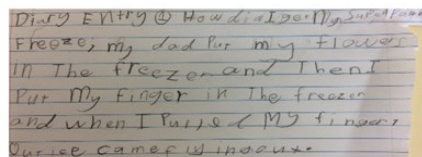 Diary Entry ① How did I get My Super Power
Freeze, my dad Put my flowers
in The freezer and Then I
Put My finger in The freezer
and when I Pulled My finger,
Out ice came